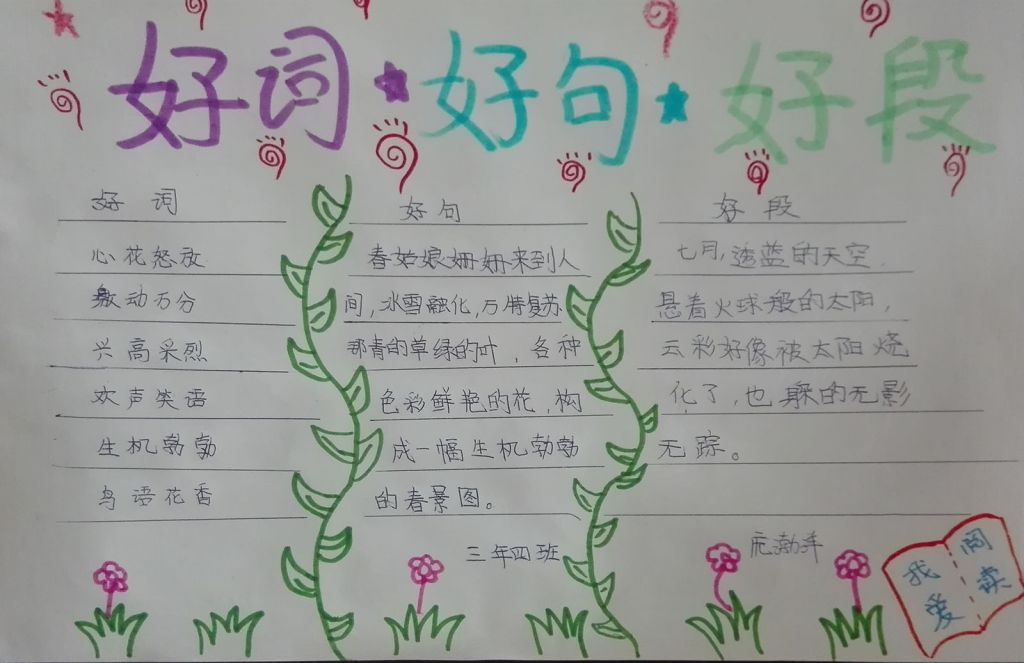 好词·好句·好段
好词
心花怒放
激动万分
兴高采烈
欢声笑语
生机勃勃
鸟语花香
好句
春姑娘姗姗来到人
间，冰雪融化，万物复苏
那青的草绿的叶，各种
色彩鲜艳的花，构
成一幅生机勃勃
的春景图。
好段
七月，透蓝的天空.
悬着火球般的太阳，
云彩好像被太阳烧
化了，也躲的无影
无踪。
三年四班
我爱
阅读